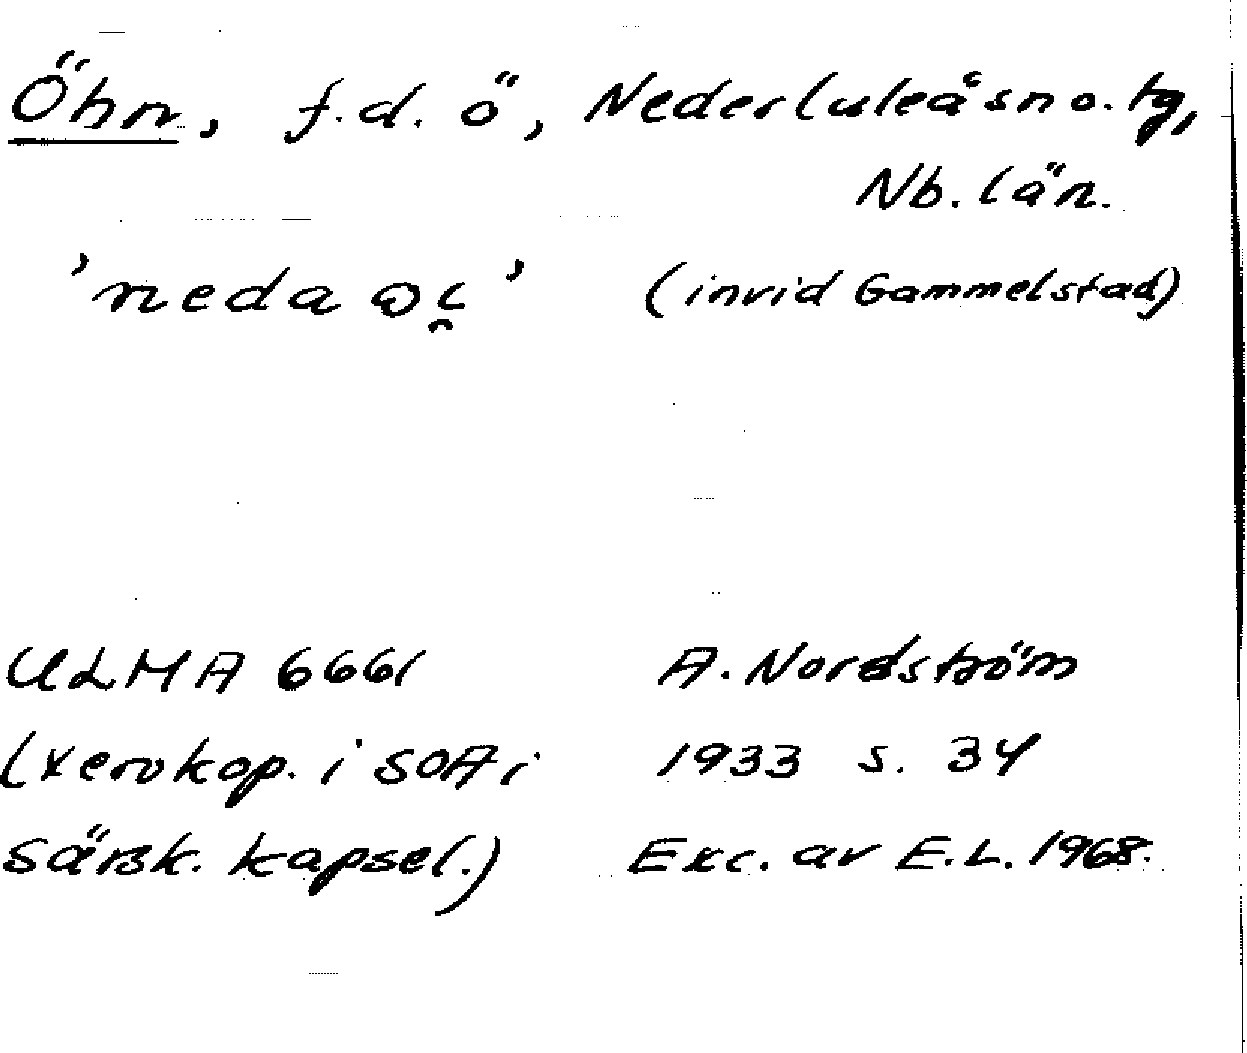 Öhn, f.d. ö, Nederluleå sn o. tg,
Nb. län.
'neda (invid Gammelstad)
ULMA 6661 A. Nordström
(xerokop. i SOA i 1933 s. 34
särsk. kapsel.) Exc. av E.L. 1968.